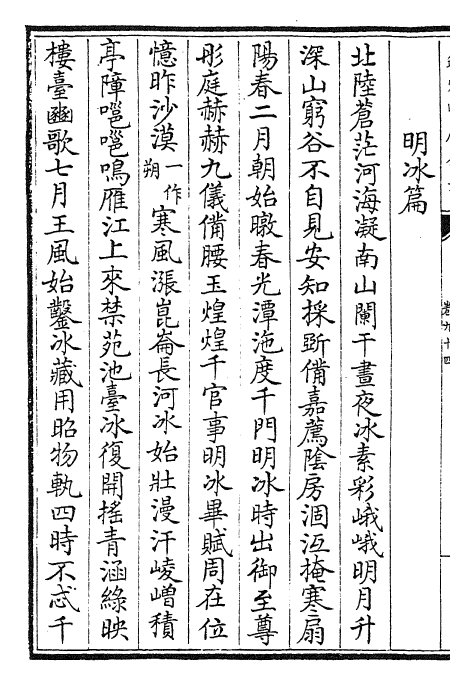 明冰篇
北陸蒼茫河海凝南山闌干晝夜冰素彩峨峨明月升
深山窮谷不自見安知採斲備嘉薦陰房涸沍掩寒扇
陽春二月朝始暾春光潭沲度千門明冰時出御至尊
彤庭赫赫九儀備腰玉煌煌千官事明冰畢賦周在位
憶昨沙漠一作朔寒風漲崑崙長河冰始壯漫汗崚嶒積
亭障嗈嗈鳴雁江上來禁苑池臺冰復開搖青涵綠映
樓臺豳歌七月王風始鑿冰藏用昭物軌四時不忒千
卷九十四